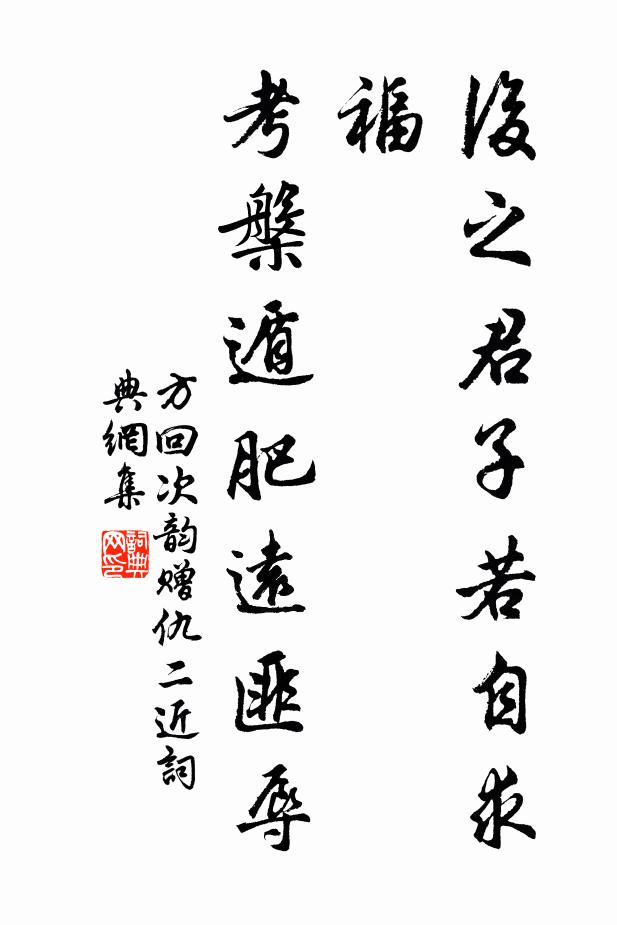 後之君子若自求
福
考槃遁肥遠匪辱
方回次韵赠仇二近詞
典網集
詞典
网印